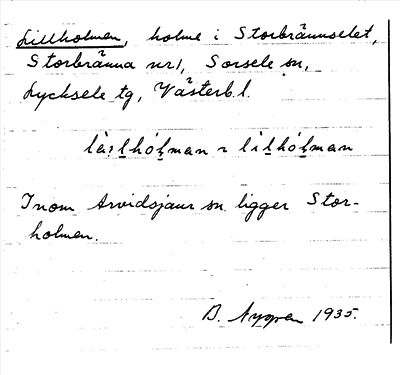 Lillholmen, holme i Storbrännselet,
Storbränna nr 1, Sorsele sn,
Lycksele tg, Västerb. l.
Inom Arvidsjaur sn ligger Stor-
holmen.
B. Nygren 1935.